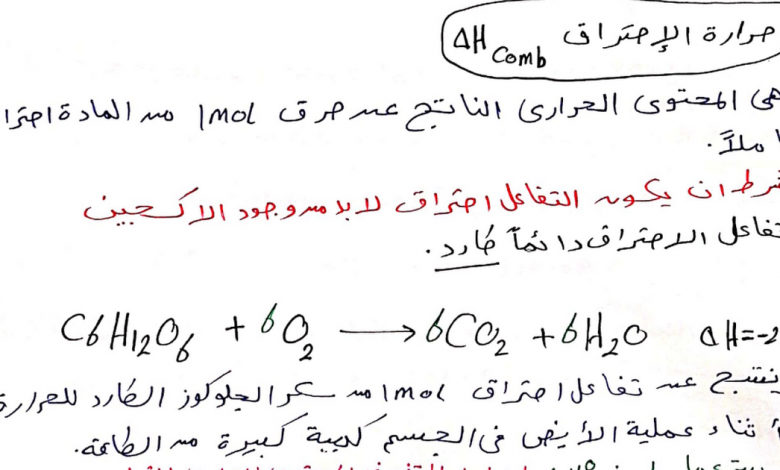 حرارة الإحتراق ΔH Comb
هى المحتوى الحرارى الناتج عن حرق 1mol من المادة احترا
ملاً.
شرط ان يكون التفاعل احتراق لابد من وجود الاكسجين
تفاعل الاحتراق دائماً طارد.
C6H12O6 + 6O2 → 6CO2 + 6H2O ΔH=-2
ينتج عن تفاعل احتراق 1mol من سكر الجلوكوز الطارد للحرارة
ثناء عملية الأيض فى الجسم كمية كبيرة من الطاقة.